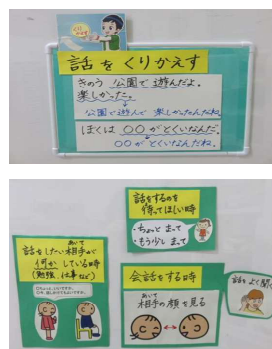 話をくりかえす
きのう 公園で遊んだよ。
楽しかった。
公園で遊んで 楽しかったんだね。
ぼくは ○○がとくいなんだ。
○○がとくいなんだね。
話をするのを
待ってほしい時
・ちょっと まって
・もう少し まって
話をしたい相手が
あいて
何か している時
(勉強、仕事など)
会話をする時
あいて
相手の顔を見る
話をよく聞く